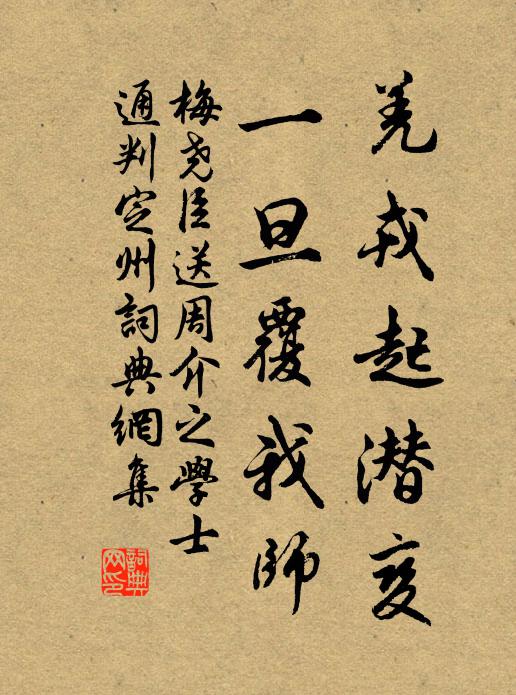 羌戎起潜变
一旦覆我師
梅尧臣送周介之學士
通判定州詞典網集
詞典网印